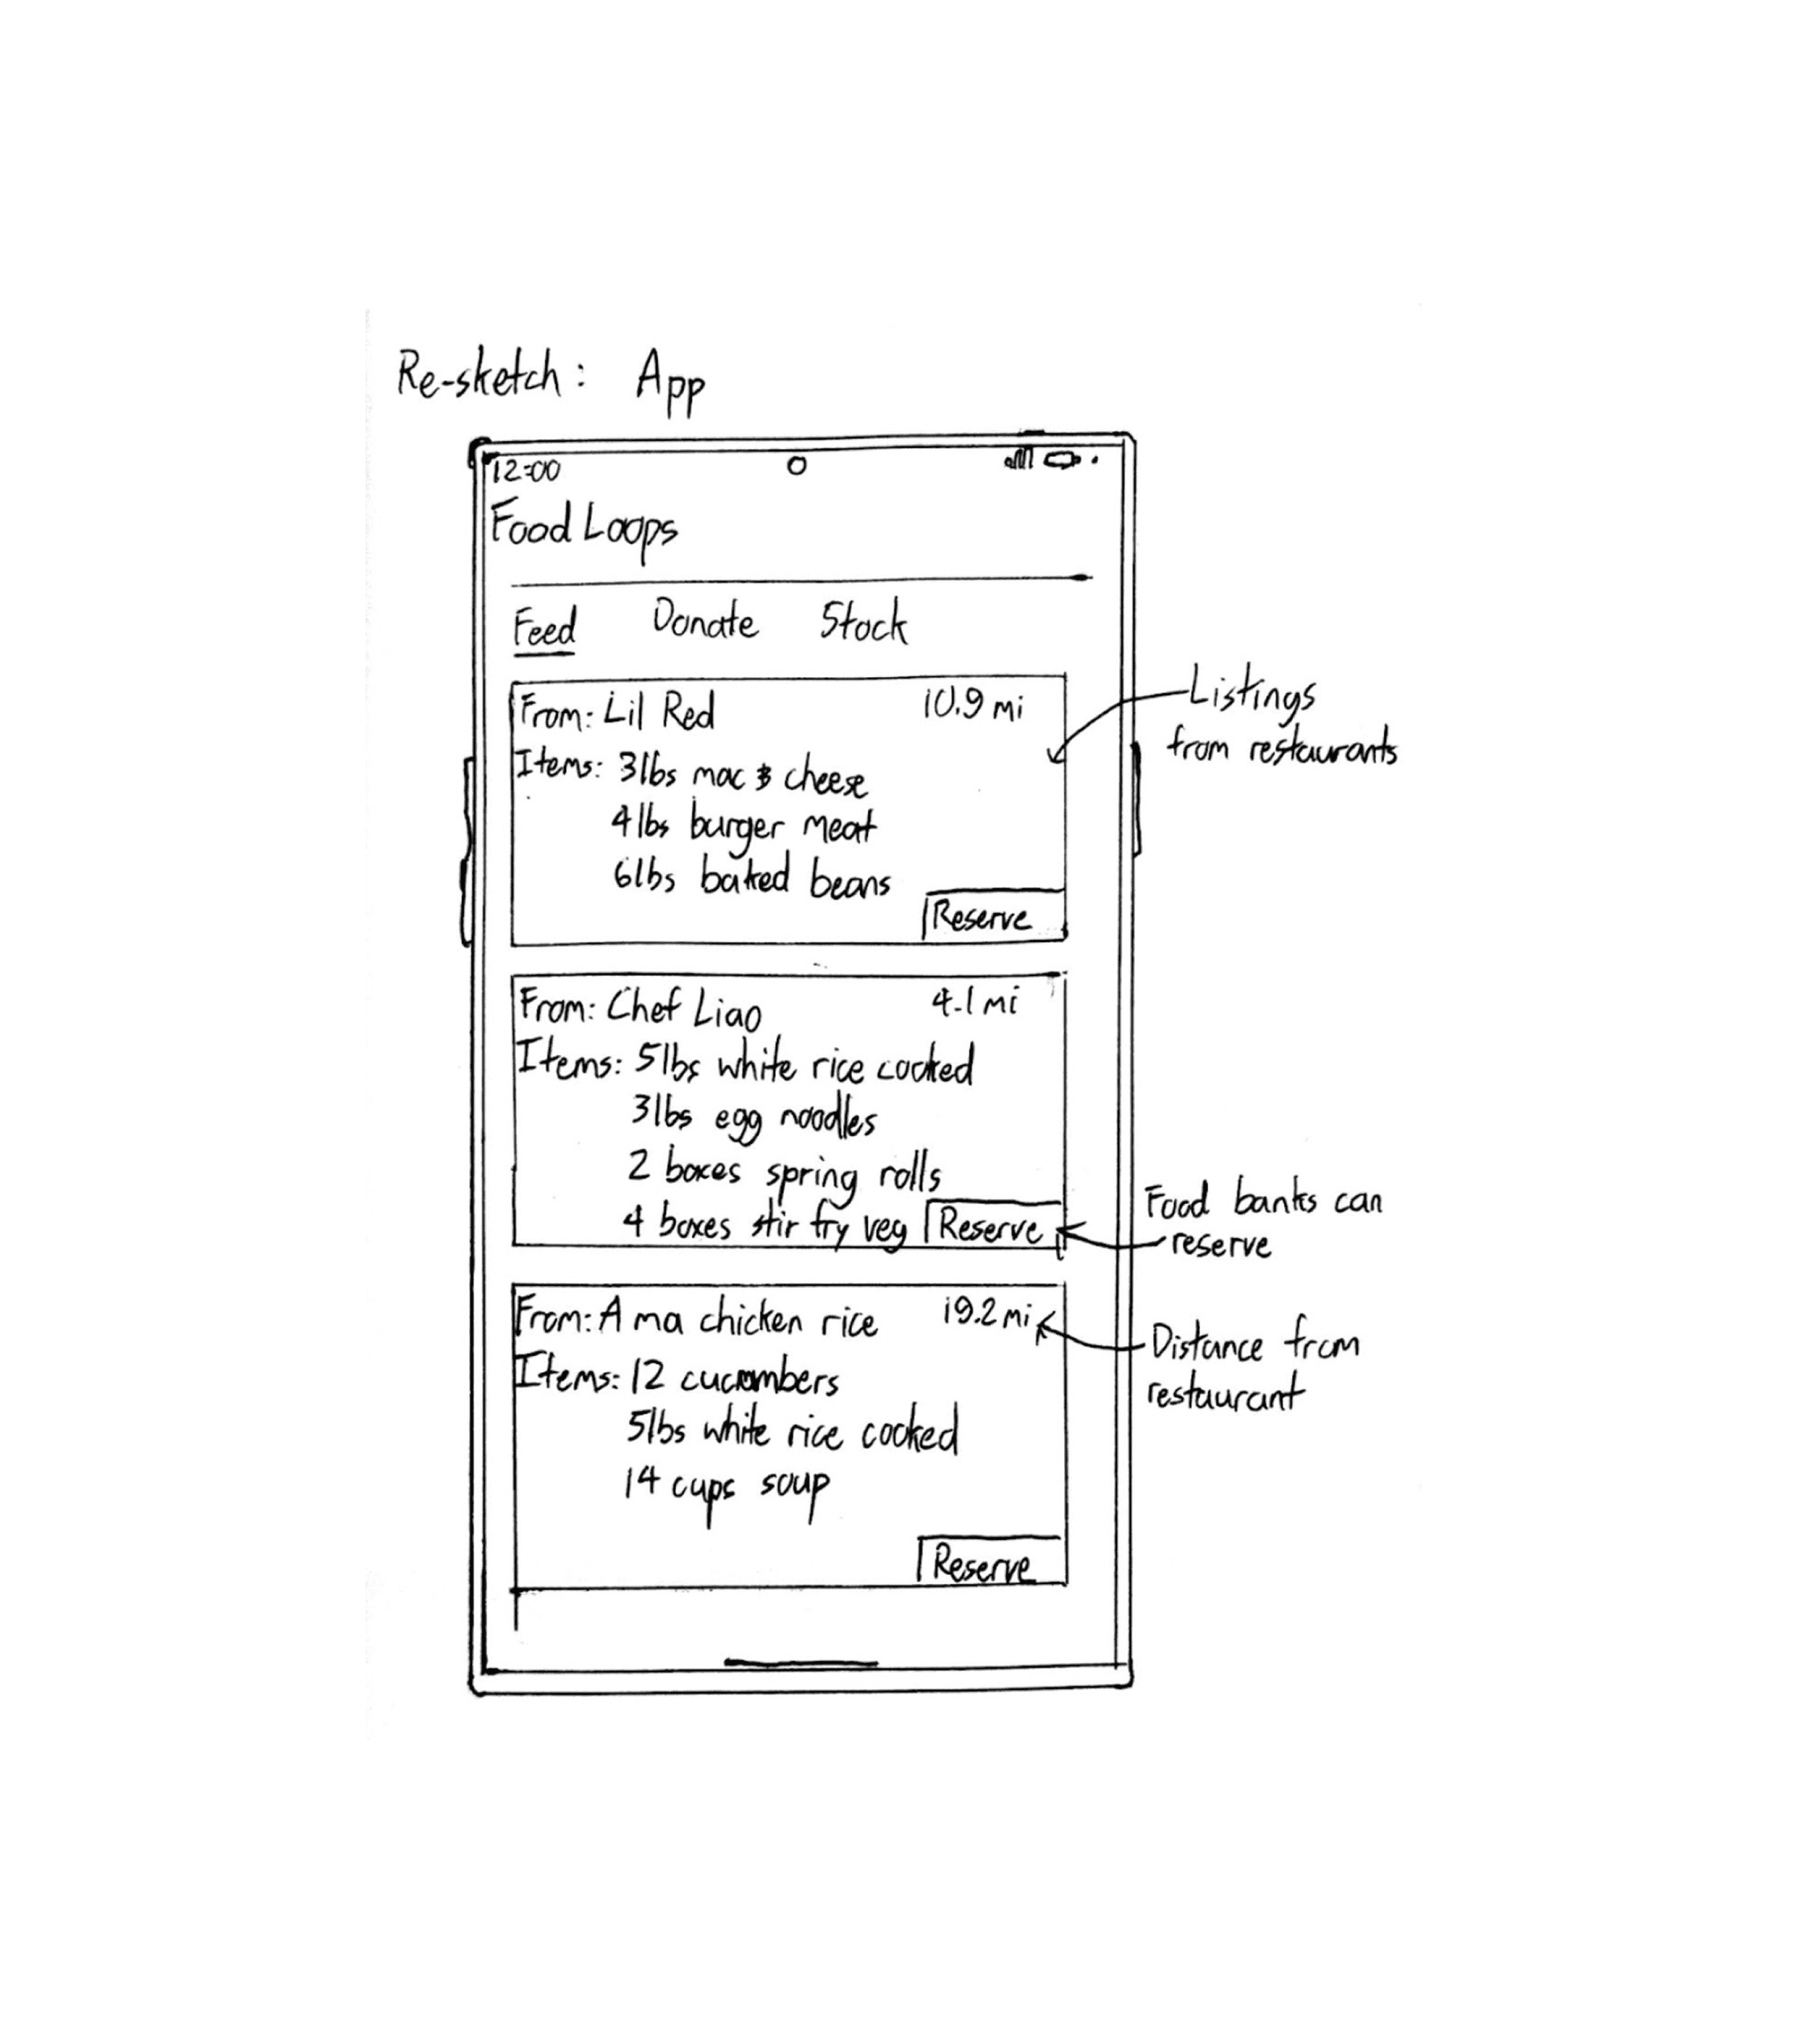 Re-sketch: App
12:00
Food Loops
Feed Donate Stock
From: Lil Red 10.9 mi
Items: 3lbs mac & cheese
4lbs burger meat
6lbs baked beans
Reserve
Listings
from restaurants
From: Chef Liao 4.1 mi
Items: 5lbs white rice cooked
3lbs egg noodles
2 boxes spring rolls
4 boxes stir fry veg Reserve
Food banks can
reserve
From: A ma chicken rice 19.2 mi
Items: 12 cucumbers
5lbs white rice cooked
14 cups soup
Reserve
Distance from
restaurant